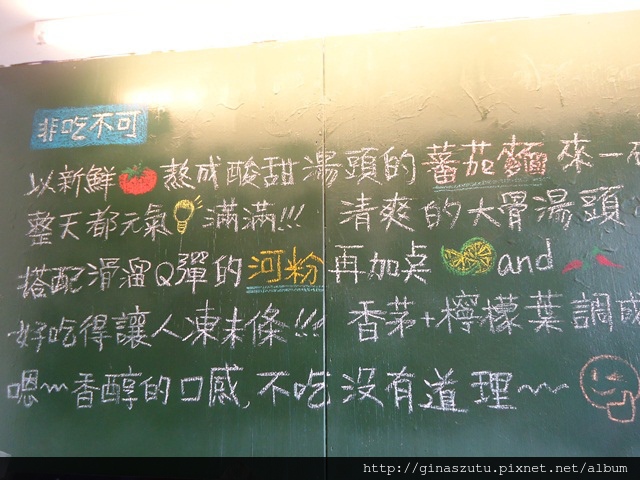 非吃不可
以新鮮🍅熬成酸甜湯頭的蕃茄麵來一
整天都元氣💡滿滿!!! 清爽的大骨湯頭
搭配滑溜Q彈的河粉再加點🍋and🌶
好吃得讓人凍未條!!! 香茅+檸檬葉調
嗯~香醇的口感,不吃沒有道理~~
http://ginaszutu.pixnet.net/album